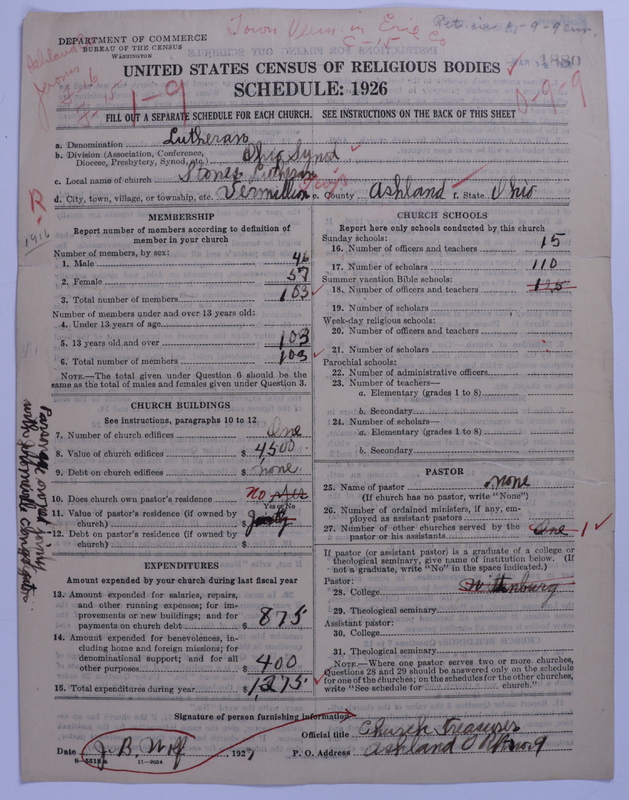 Town Verm in Erie Co
DEPARTMENT OF COMMERCE
BUREAU OF THE CENSUS
WASHINGTON
UNITED STATES CENSUS OF RELIGIOUS BODIES
SCHEDULE: 1926
1-9
0-9-9
FILL OUT A SEPARATE SCHEDULE FOR EACH CHURCH. SEE INSTRUCTIONS ON THE BACK OF THIS SHEET
a. Denomination Lutheran
b. Division (Association, Conference, Diocese, Presbytery, Synod, etc.) Ohio Synod
c. Local name of church Stones Lutheran
d. City, town, village, or township, etc. Vermillion e. County Ashland f. State Ohio
R
1916
MEMBERSHIP
Report number of members according to definition of
member in your church
Number of members, by sex:
1. Male 46
2. Female 57
3. Total number of members 103
Number of members under and over 13 years old:
4. Under 13 years of age
5. 13 years old and over 103
6. Total number of members 103
NOTE.—The total given under Question 6 should be the
same as the total of males and females given under Question 3.
CHURCH BUILDINGS
See instructions, paragraphs 10 to 12
7. Number of church edifices One
8. Value of church edifices $ 4500
9. Debt on church edifices $ none
10. Does church own pastor's residence No Yes
Yes or No
11. Value of pastor's residence (if owned by
church) $ Jointly
12. Debt on pastor's residence (if owned by
church) $
Parsonage owned jointly
with
EXPENDITURES
Amount expended by your church during last fiscal year
13. Amount expended for salaries, repairs,
and other running expenses; for im-
provements or new buildings; and for
payments on church debt $ 875
14. Amount expended for benevolences, in-
cluding home and foreign missions; for
denominational support; and for all
other purposes $ 400
15. Total expenditures during year $ 1275
CHURCH SCHOOLS
Report here only schools conducted by this church
Sunday schools:
16. Number of officers and teachers 15
17. Number of scholars 110
Summer vacation Bible schools:
18. Number of officers and teachers 125
19. Number of scholars
Week-day religious schools:
20. Number of officers and teachers
21. Number of scholars
Parochial schools:
22. Number of administrative officers
23. Number of teachers—
a. Elementary (grades 1 to 8)
b. Secondary
24. Number of scholars—
a. Elementary (grades 1 to 8)
b. Secondary
PASTOR
25. Name of pastor none
(If church has no pastor, write "None")
26. Number of ordained ministers, if any, em-
ployed as assistant pastors
27. Number of other churches served by the
pastor or his assistants One 1
If pastor (or assistant pastor) is a graduate of a college or
theological seminary, give name of institution below. (If
not a graduate, write "No" in the space indicated.)
Pastor:
28. College Wittenburg
29. Theological seminary
Assistant pastor:
30. College
31. Theological seminary
NOTE.—Where one pastor serves two or more churches,
Questions 28 and 29 should be answered only on the schedule
for one of the churches; on the schedules for the other churches,
write "See schedule for church."
Signature of person furnishing information
Official title Church Treasurer
Date J. B. Wolf, 1927 P. O. Address Ashland O
8-5518a 11-9054